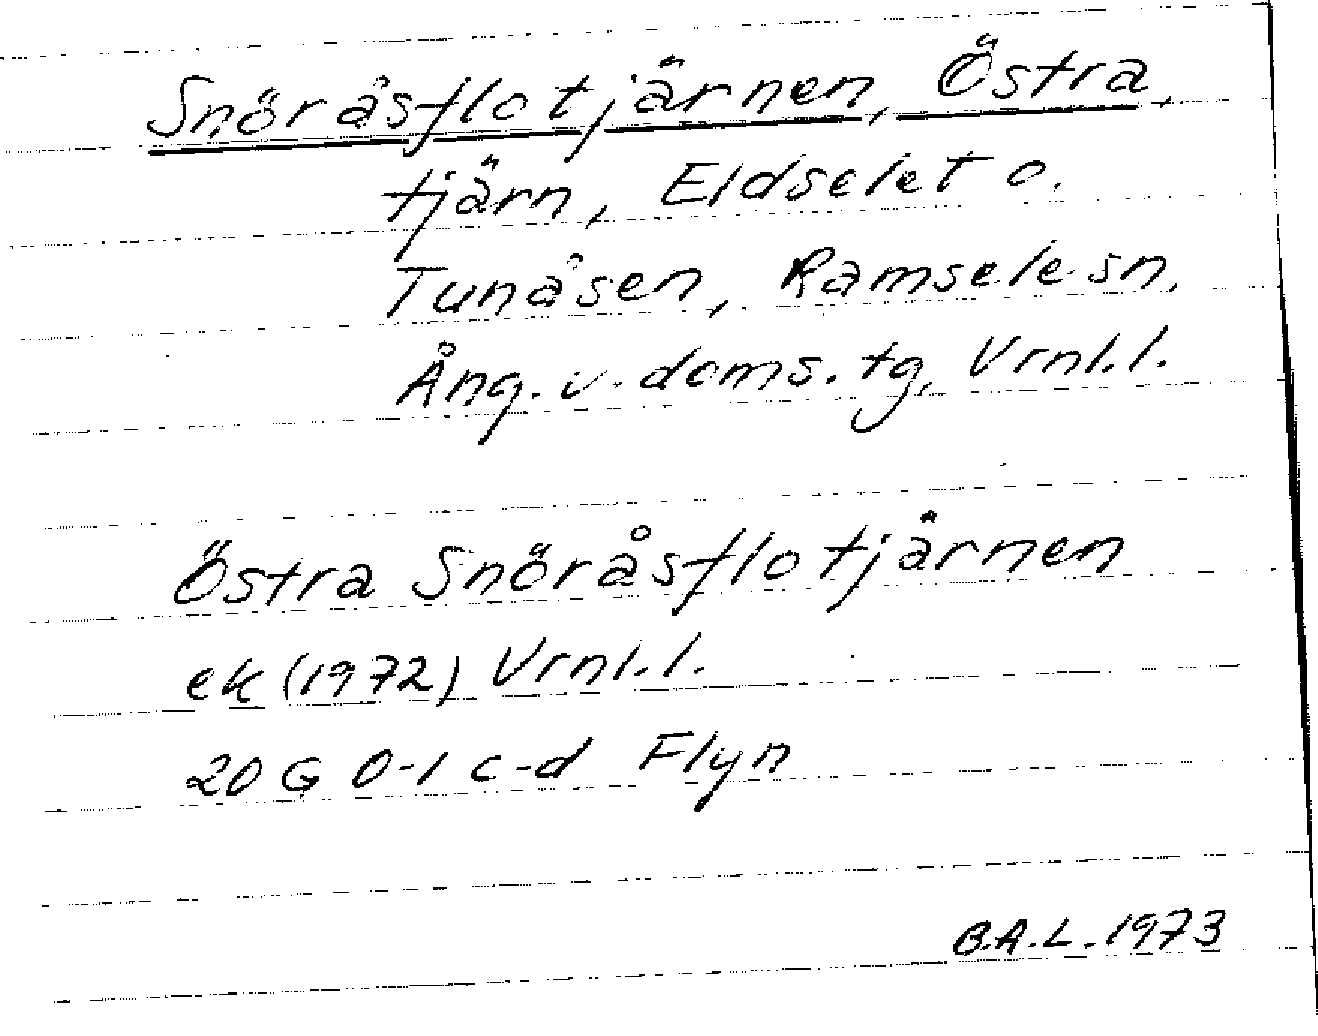 Snöråsflotjärnen, Östra,
tjärn, Eldselet o.
Tunåsen, Ramsele sn,
Ång. v. doms. tg, Vrnl. l.
Östra Snöråsflotjärnen
ek (1972) Vrnl. l.
20 G 0-1 c-d Flyn
B.A.L. 1973